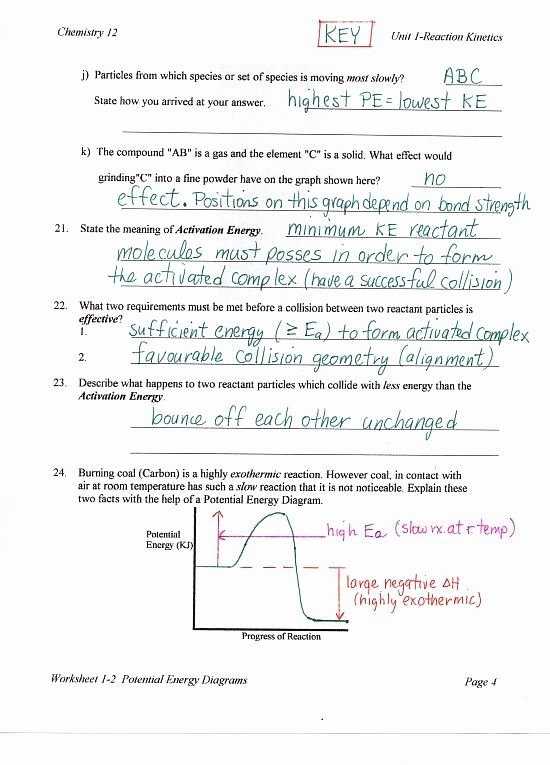 Chemistry 12 KEY Unit 1-Reaction Kinetics
j) Particles from which species or set of species is moving most slowly? ABC
State how you arrived at your answer. highest PE = lowest KE
k) The compound "AB" is a gas and the element "C" is a solid. What effect would
grinding"C" into a fine powder have on the graph shown here? no
effect. Positions on this graph depend on bond strength
21. State the meaning of Activation Energy. minimum KE reactant
molecules must posses in order to form
the activated complex (have a successful collision)
22. What two requirements must be met before a collision between two reactant particles is
effective?
1. sufficient energy (≥ Ea) to form activated complex
2. favourable collision geometry (alignment)
23. Describe what happens to two reactant particles which collide with less energy than the
Activation Energy.
bounce off each other unchanged
24. Burning coal (Carbon) is a highly exothermic reaction. However coal, in contact with
air at room temperature has such a slow reaction that it is not noticeable. Explain these
two facts with the help of a Potential Energy Diagram.
Potential
Energy (KJ)
high Ea (slow rx. at r temp)
large negative ΔH
(highly exothermic)
Progress of Reaction
Worksheet 1-2 Potential Energy Diagrams Page 4